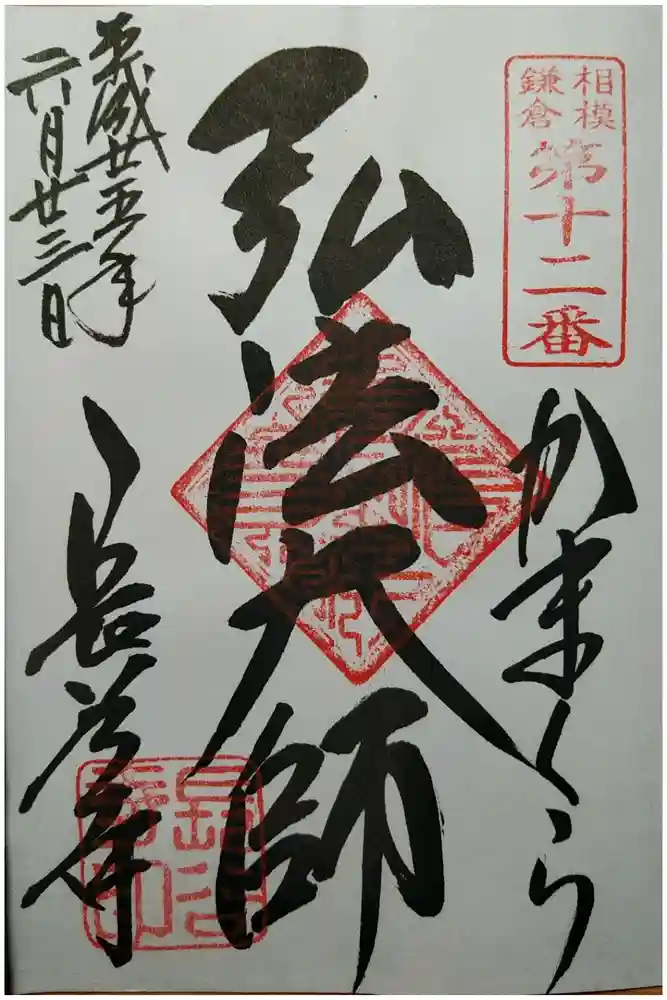 相模
鎌倉
第十二番
かまくら
弘法大師
平成廿五年
六月廿三日
長谷寺